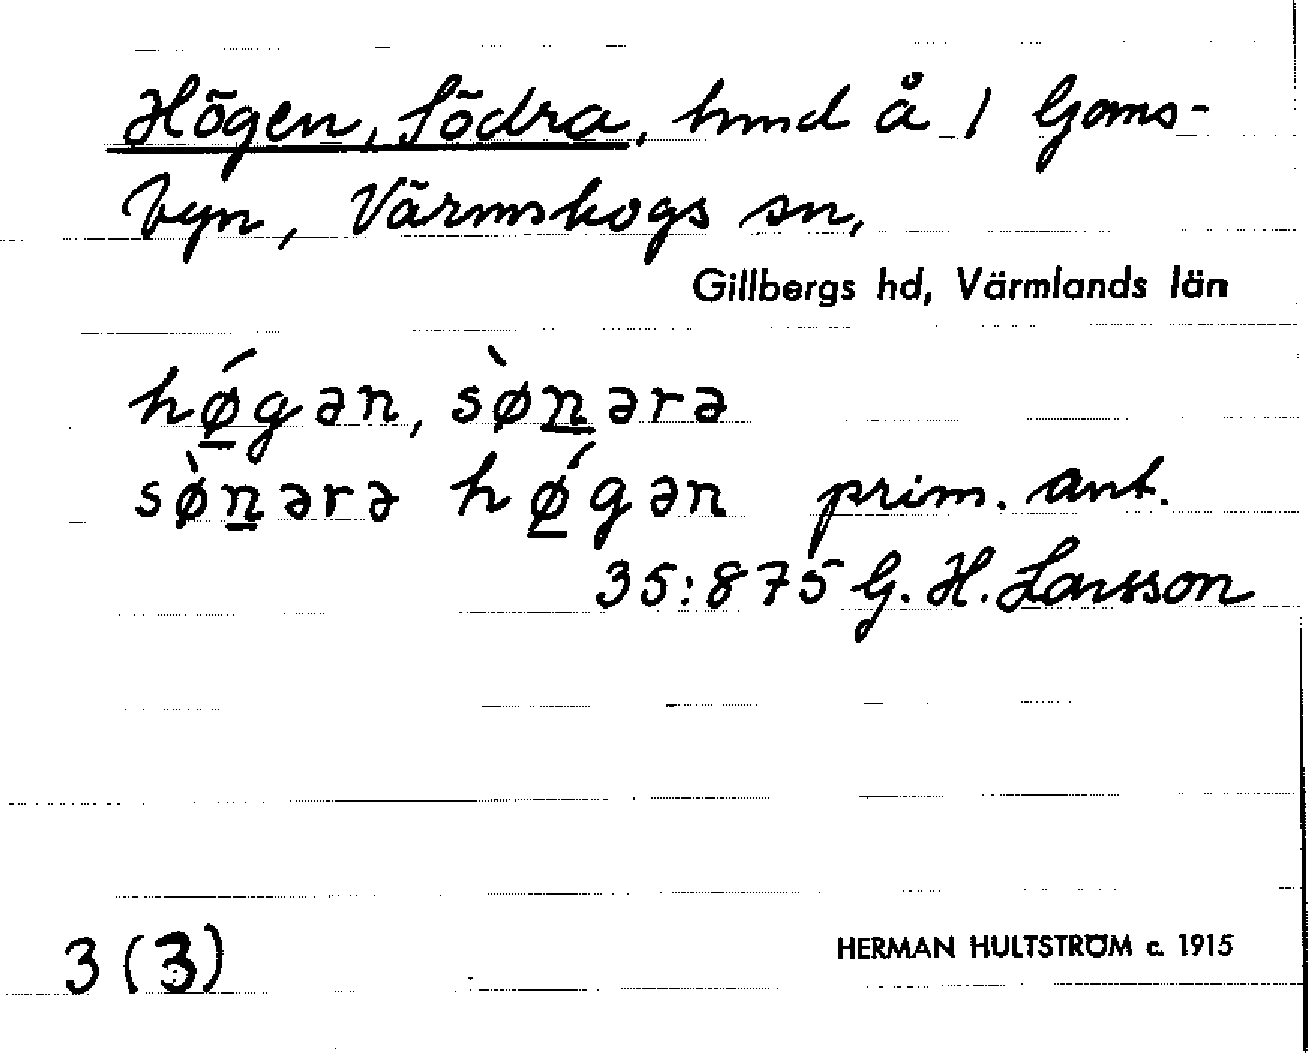 Högen, Södra, hmd å 1 Goms-
byn, Värmskogs sn,
Gillbergs hd, Värmlands län
hǿ̲gən, sø̀n̲ərə
sø̀n̲ərə hǿ̲gən prim. ant.
35:875 G. H. Larsson
3 (3) HERMAN HULTSTRÖM c. 1915